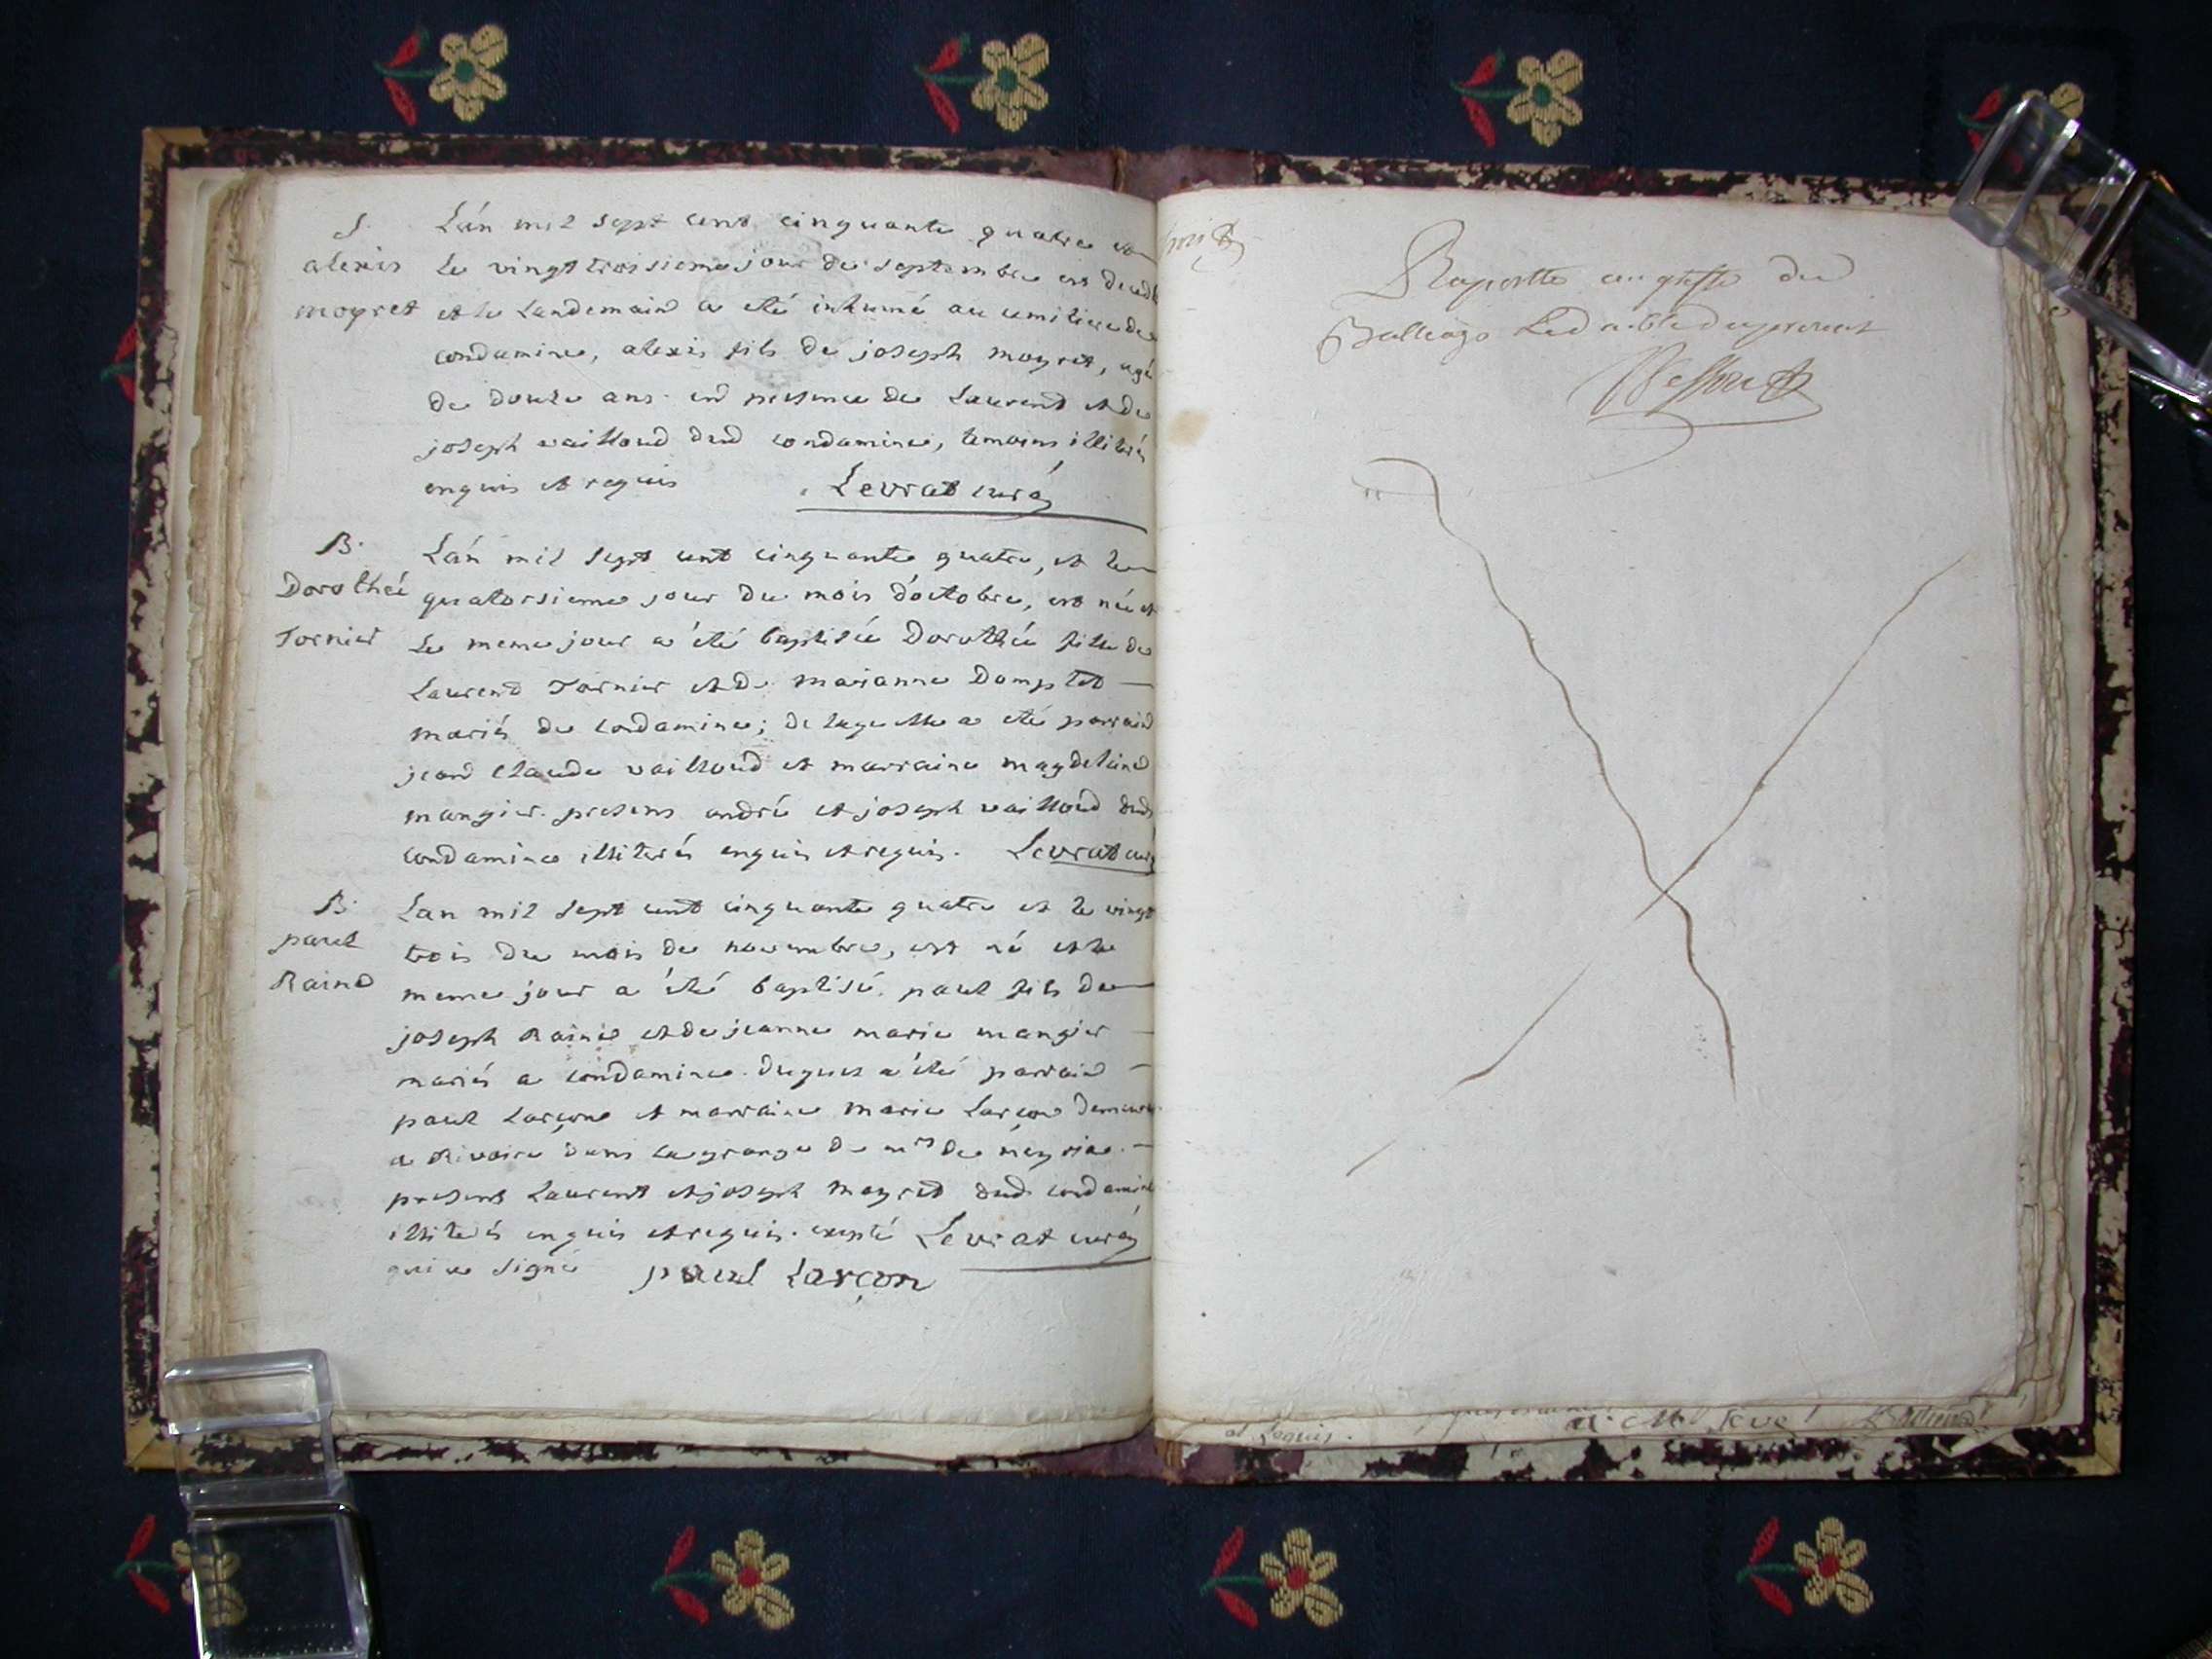 S.
alexis
moyret
Lán mil sept cent cinquante quatre et
le vingt troisieme jour de septembre est decedé
et le landemain a été inhumé au cimitiere de
condamine, alexis fils de joseph moyret, agé
de douze ans. en presence de Laurend et de
joseph vailloud dud condamine, temoins illiterés
enquis et requis Levrat curé
B.
Dorothée
Tornier
Lán mil sept cent cinquante quatre, et le
quatorsieme jour du mois d'octobre, est née et
le meme jour a été baptisée Dorothée fille de
Laurend Tornier et de marianne Dompted
mariés de condamine; de laquelle a été parraind
jeand claude vailloud et marraine magdelaine
mangier. presens andré et joseph vailloud dud
condamine illiterés enquis et requis. Levrat curé
B.
paul
Raind
Lan mil sept cent cinquante quatre et le vingt
trois du mois de novembre, est né et le
meme jour a été baptisé. paul fils de
joseph Raind et de jeanne marie mangier
mariés a condamine. duquel a été parraind
paul Larçon et marraine marie Larçon demeurt
a Rivoire dans la grange de mrs de meyria.
presens Laurent et joseph moyret dud condamine
illiterés enquis et requis. excepté Levrat curé
qui a signé paul Larçon
Raportté au greffe du
Balliage
et requis.